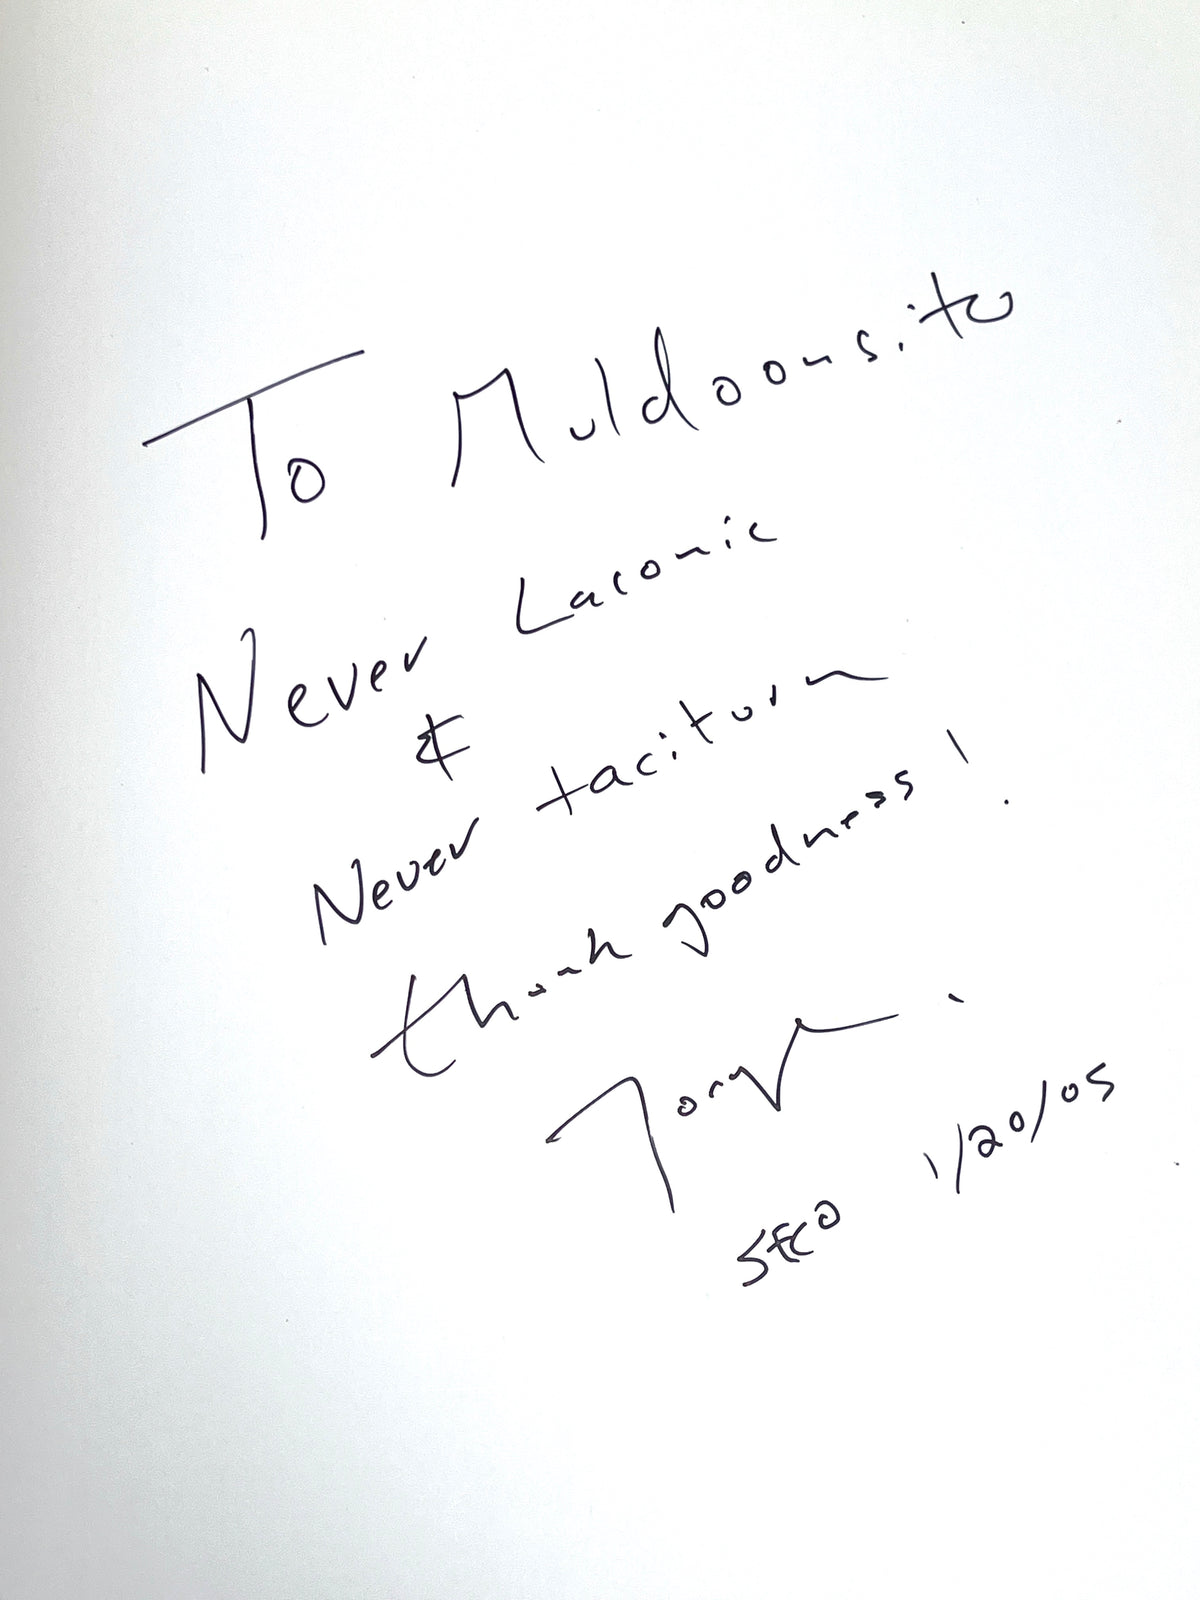 To Muldoonsito
Never Laconic
&
Never taciturn
thank goodness!
Tony
SFCO 1/20/05